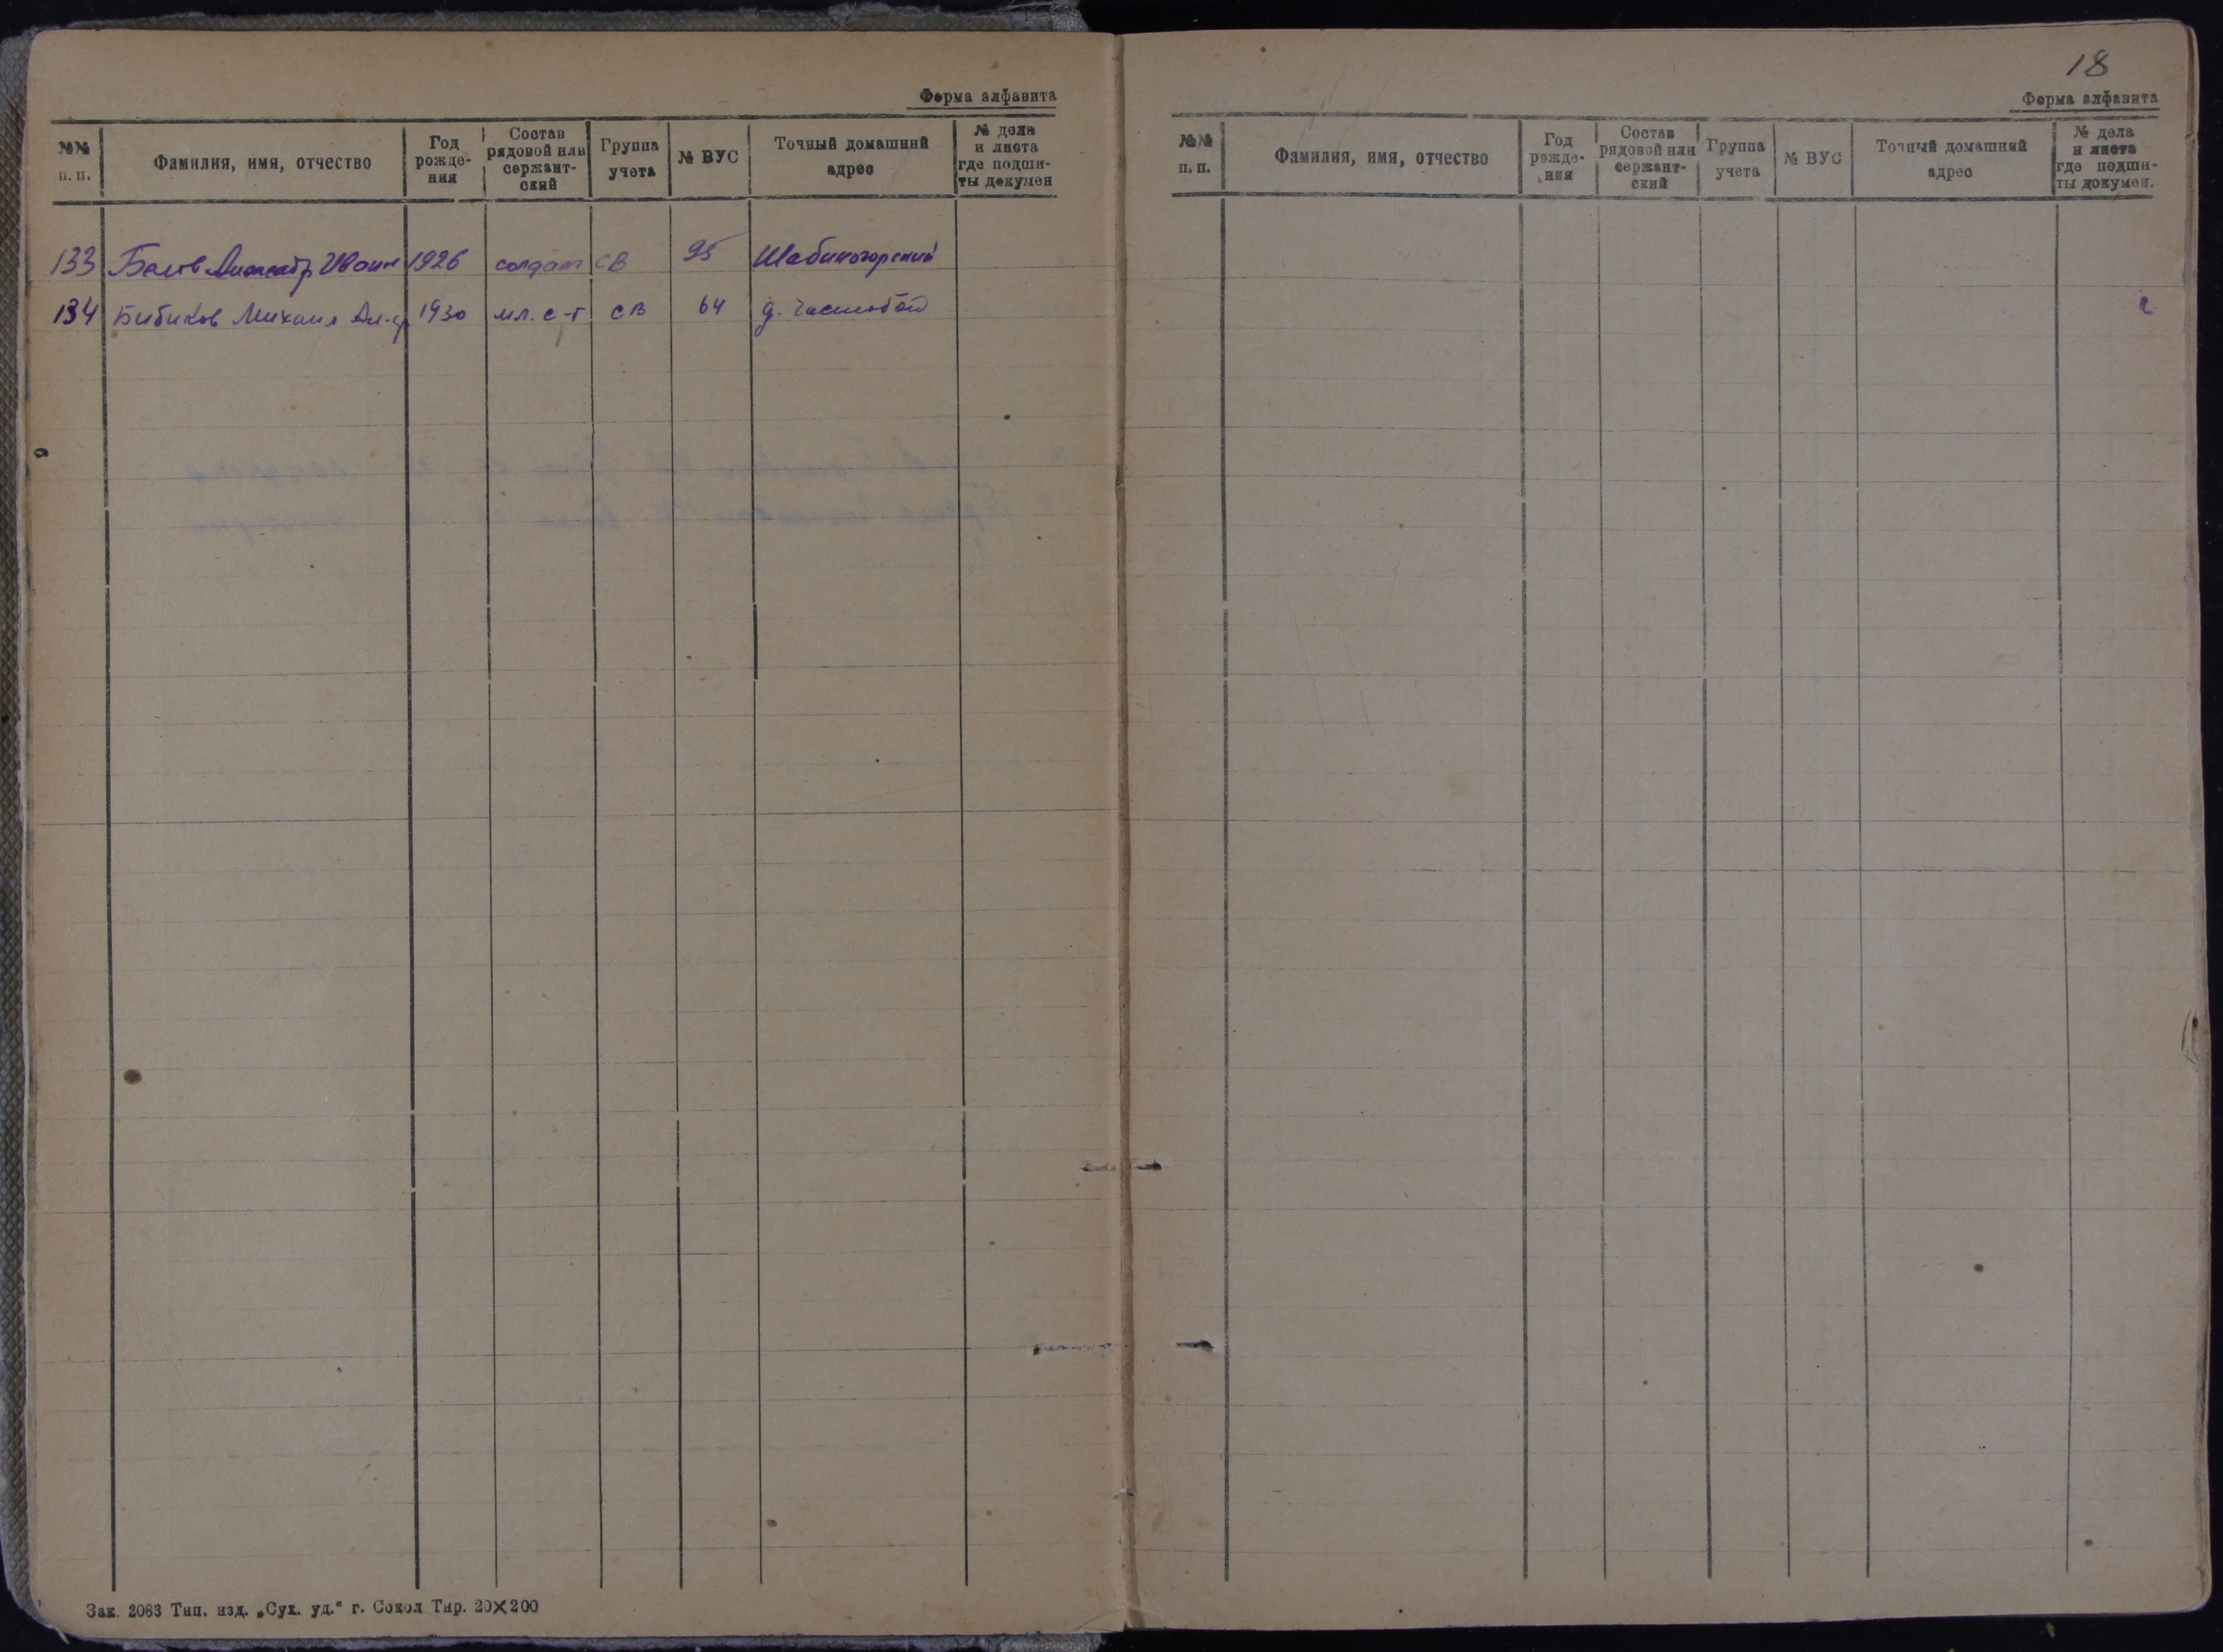 Форма алфавита
№№ п. п.
Фамилия, имя, отчество
Год рожде-ния
Состав рядовой или сержант-ский
Группа учета
№ ВУС
Точный домашний адрес
№ дела и листа где подши-ты докумен
133 Александр Иван 1926 солдат СВ 95
134 Бибиков Михаил Ал-др 1930 мл. с-т СВ 64 д.
Зак. 2083 Тип. изд. „Сух. уд.“ г. Сокол Тир. 20×200
18
Форма алфавита
№№ п. п.
Фамилия, имя, отчество
Год рожде-ния
Состав рядовой или сержант-ский
Группа учета
№ ВУС
Точный домашний адрес
№ дела и листа где подши-ты докумен.